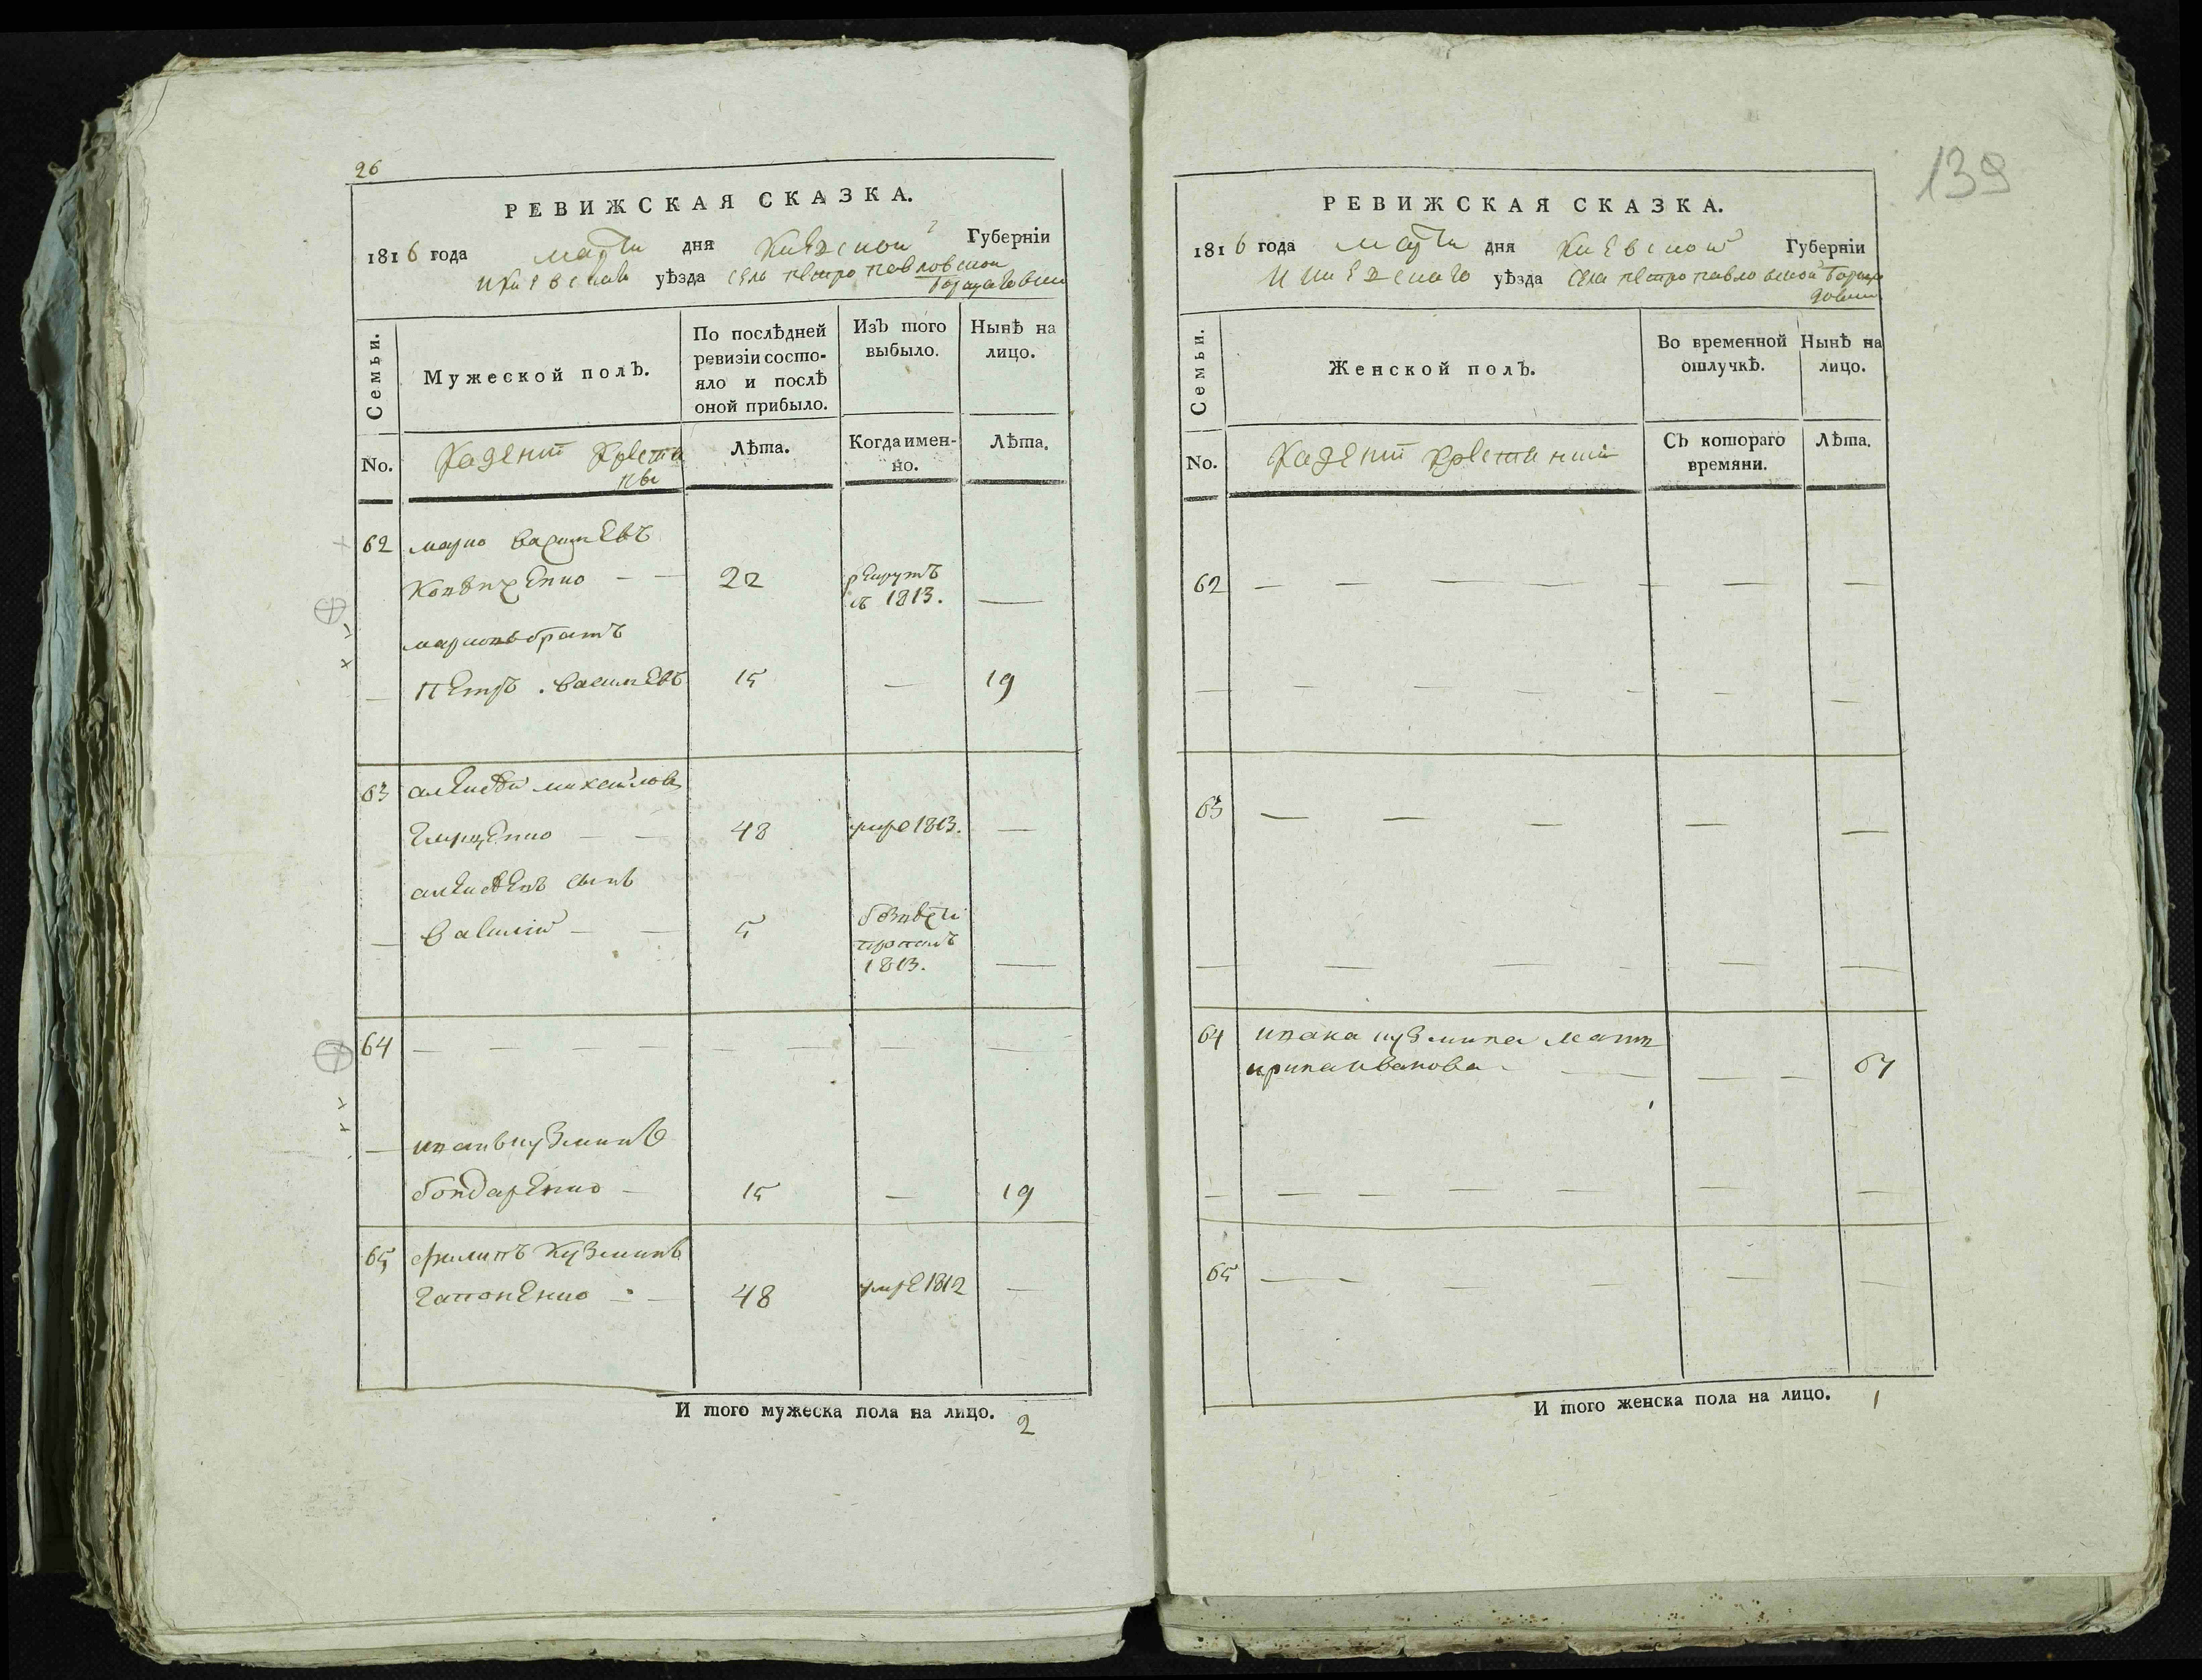 26
РЕВИЖСКАЯ СКАЗКА.
1816 года марта дня Киевской Губерніи
Киевскаго уѣзда села петропавловской
борщаговки
Семьи.
Мужеской полъ.
По послѣдней
ревизіи состо-
яло и послѣ
оной прибыло.
Изъ того
выбыло.
Нынѣ на
лицо.
No.
Казенн
крестя
ны
Лѣта.
Когда имен-
но.
Лѣта.
62 марко василевъ
22
рекрутъ
въ 1813.
марковъ братъ
Петръ василевъ 15 — 19
63 алексѣй михайловъ
48 умре 1813. —
алексѣевъ сынъ
василий — — 5
безвести
пропалъ
1813. —
64 — — — — — — — —
— иванъ кузминъ
бондаренко — 15 — 19
65 филипъ кузминъ
гапоненко — 48 умре 1812 —
И того мужеска пола на лицо. 2
139
РЕВИЖСКАЯ СКАЗКА.
1816 года марта дня Киевской Губерніи
Киевскаго уѣзда села петропавловской борща
говки
Семьи.
Женской полъ.
Во временной
отлучкѣ.
Нынѣ на
лицо.
No.
Казенн крестянки
Съ котораго
времяни.
Лѣта.
62 — — — — — — —
63 — — — — —
64 ивана кузмина мать
ирина иванова — — — — 67
65 — — — — —
И того женска пола на лицо. 1